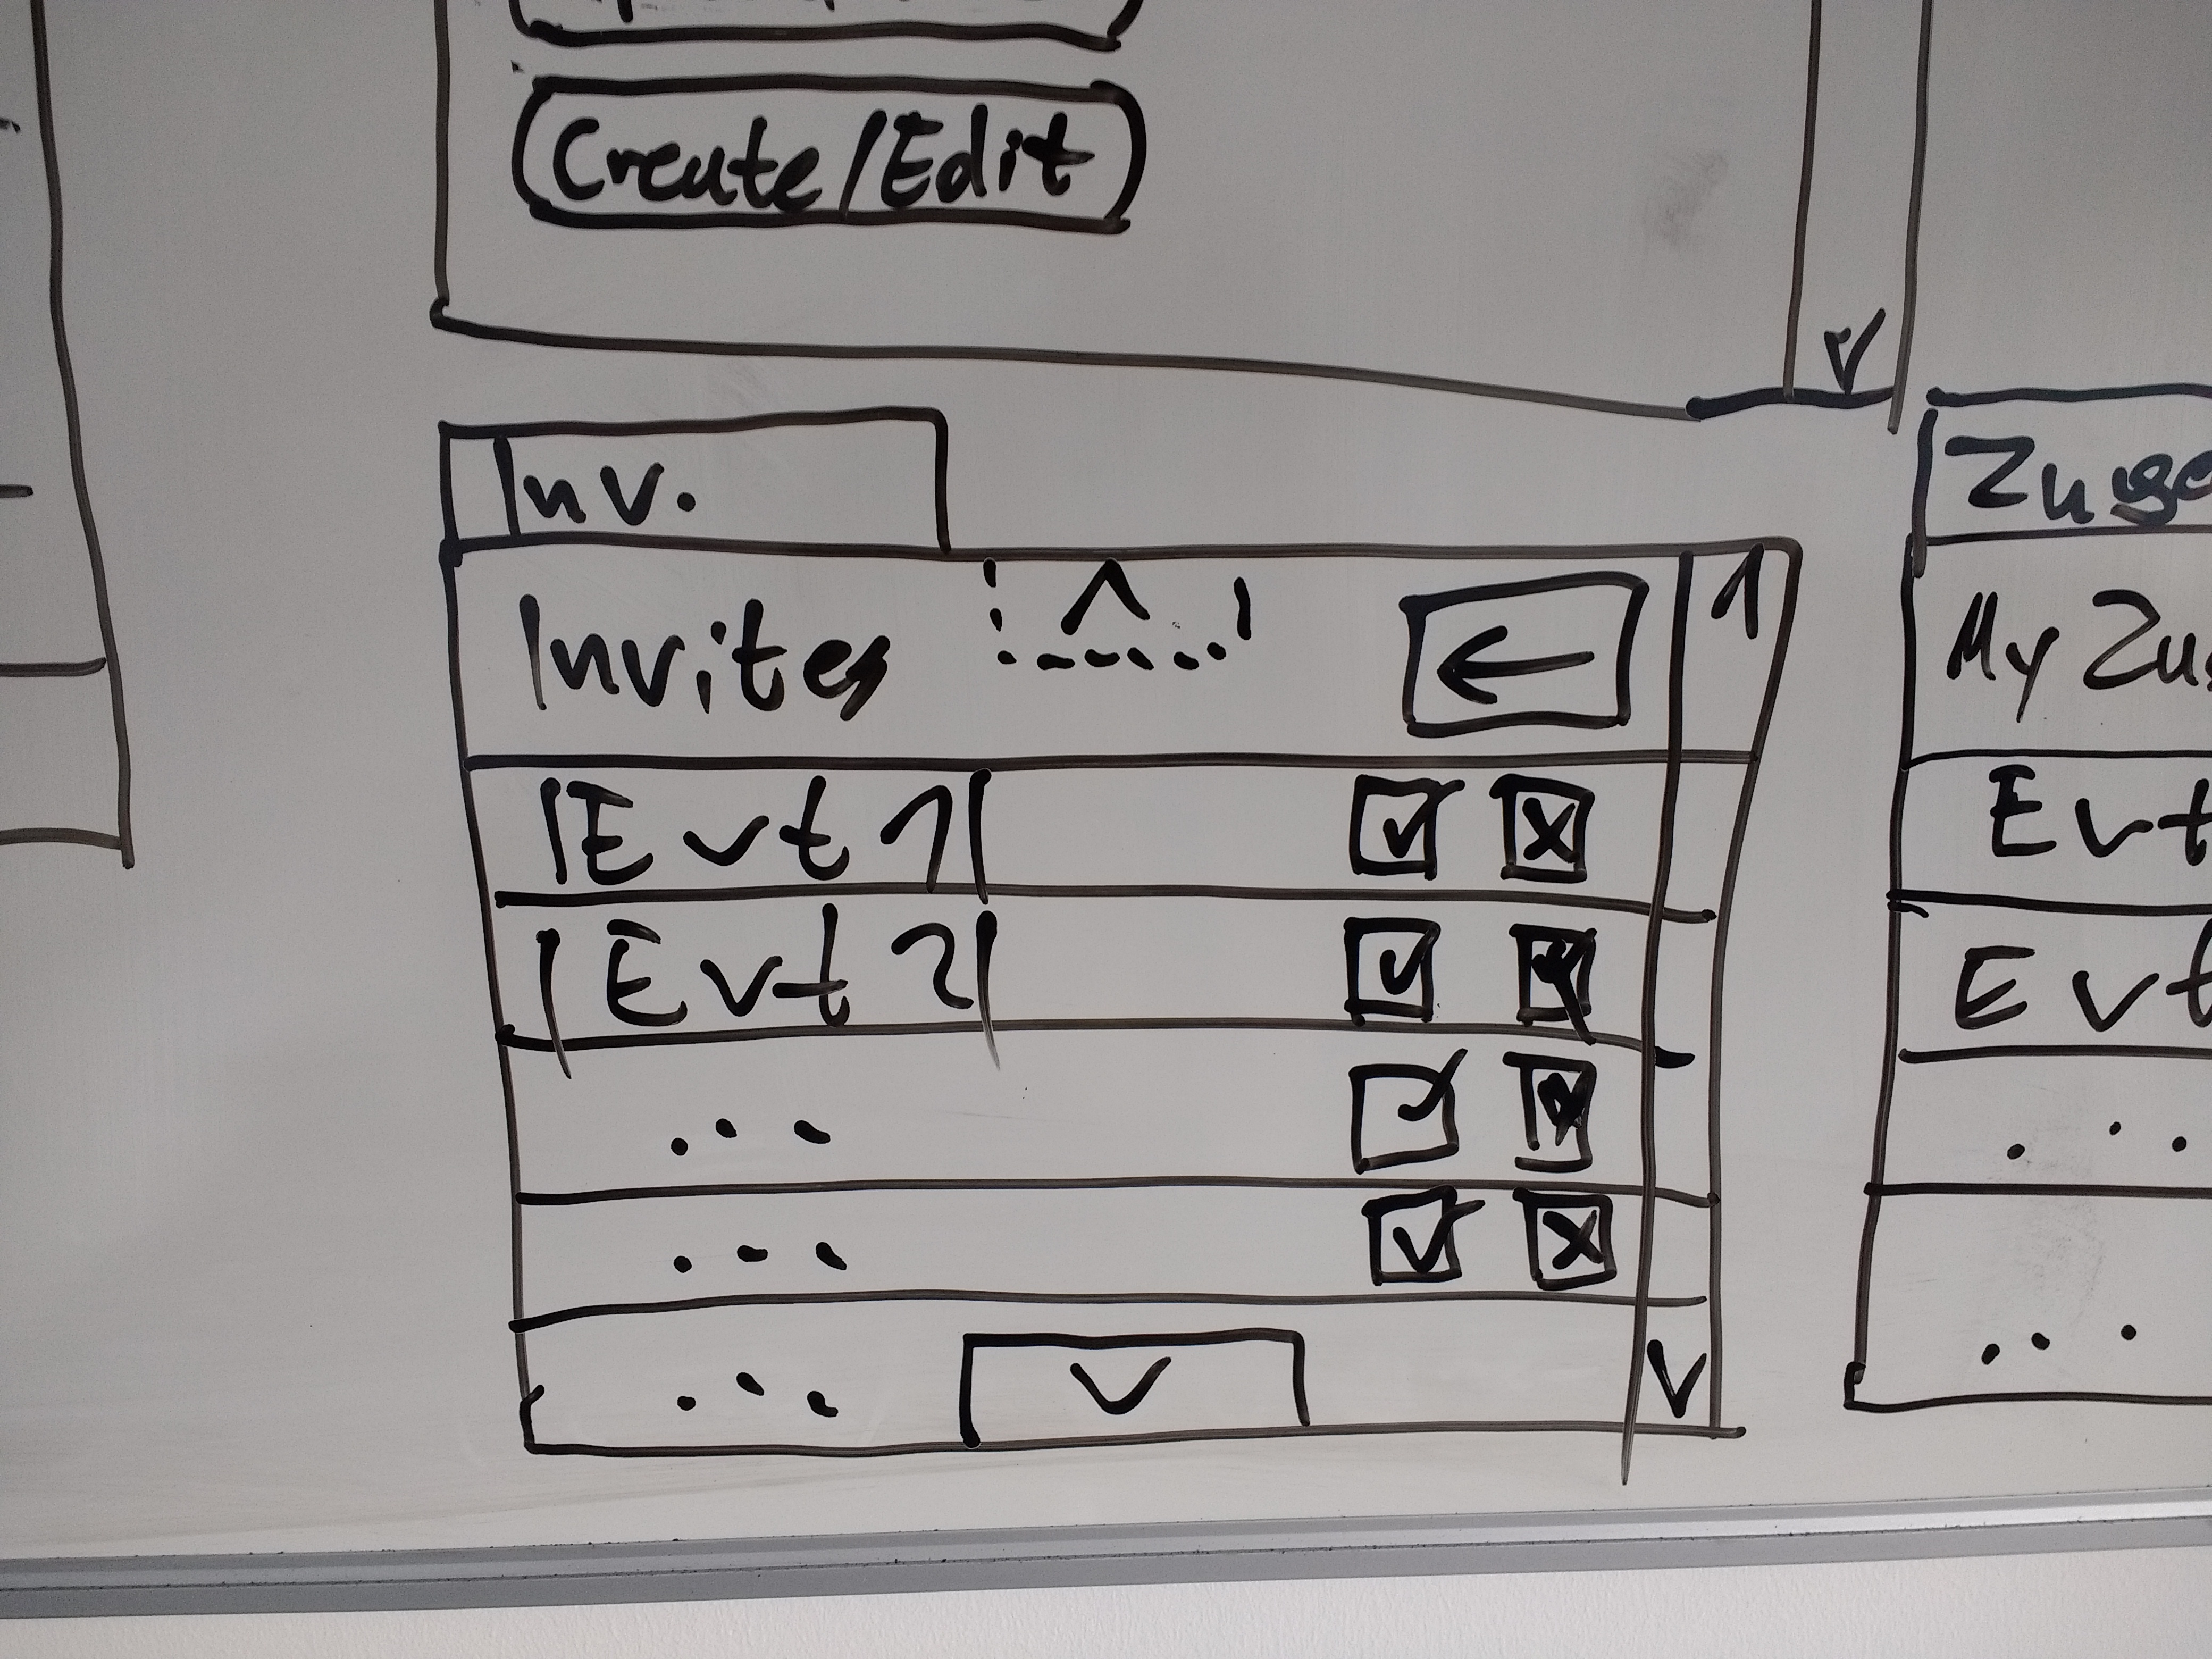 Create/Edit
Inv.
Invites
Evt 1
Evt 2
...
...
...
My
Evt
Evt
...
...